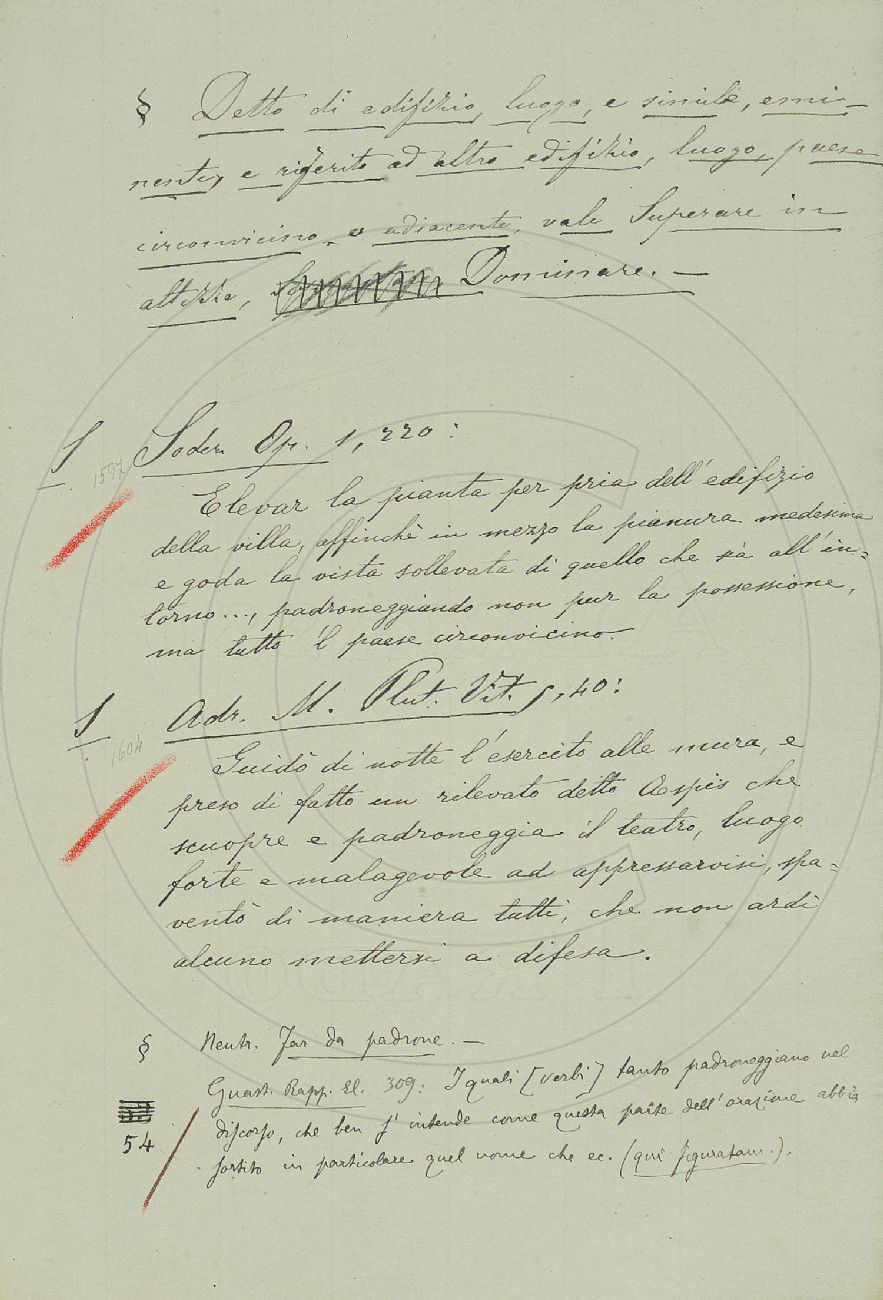 § Detto di edifizio, luogo, e simile, emi-
nente, e riferito ad altro edifizio, luogo, paese
circonvicino, o adiacente, vale Superare in
altezza, Dominare. —
1 Soder. Op. 1, 220:
1597
Elevar la pianta per pria dell'edifizio
della villa, affinchè in mezzo la pianura medesima
e goda la vista sollevata di quello che sia all'in=
torno..., padroneggiando non pur la possessione,
ma tutto 'l paese circonvicino.
1 Adr. M. Plut. Vit. 5, 40:
1604
Guidò di notte l'esercito alle mura, e
preso di fatto un rilevato detto Aspis che
scuopre e padroneggia il teatro, luogo
forte e malagevole ad appressarvisi, spa=
ventò di maniera tutti, che non ardì
alcuno mettersi a difesa.
§ Neutr. Far da padrone. —
Guast. Rapp. El. 309: I quali [verbi] tanto padroneggiano nel
discorso, che ben s'intende come questa parte dell'orazione abbia
54 sortito in particolare quel nome che ec. (qui figuratam.).